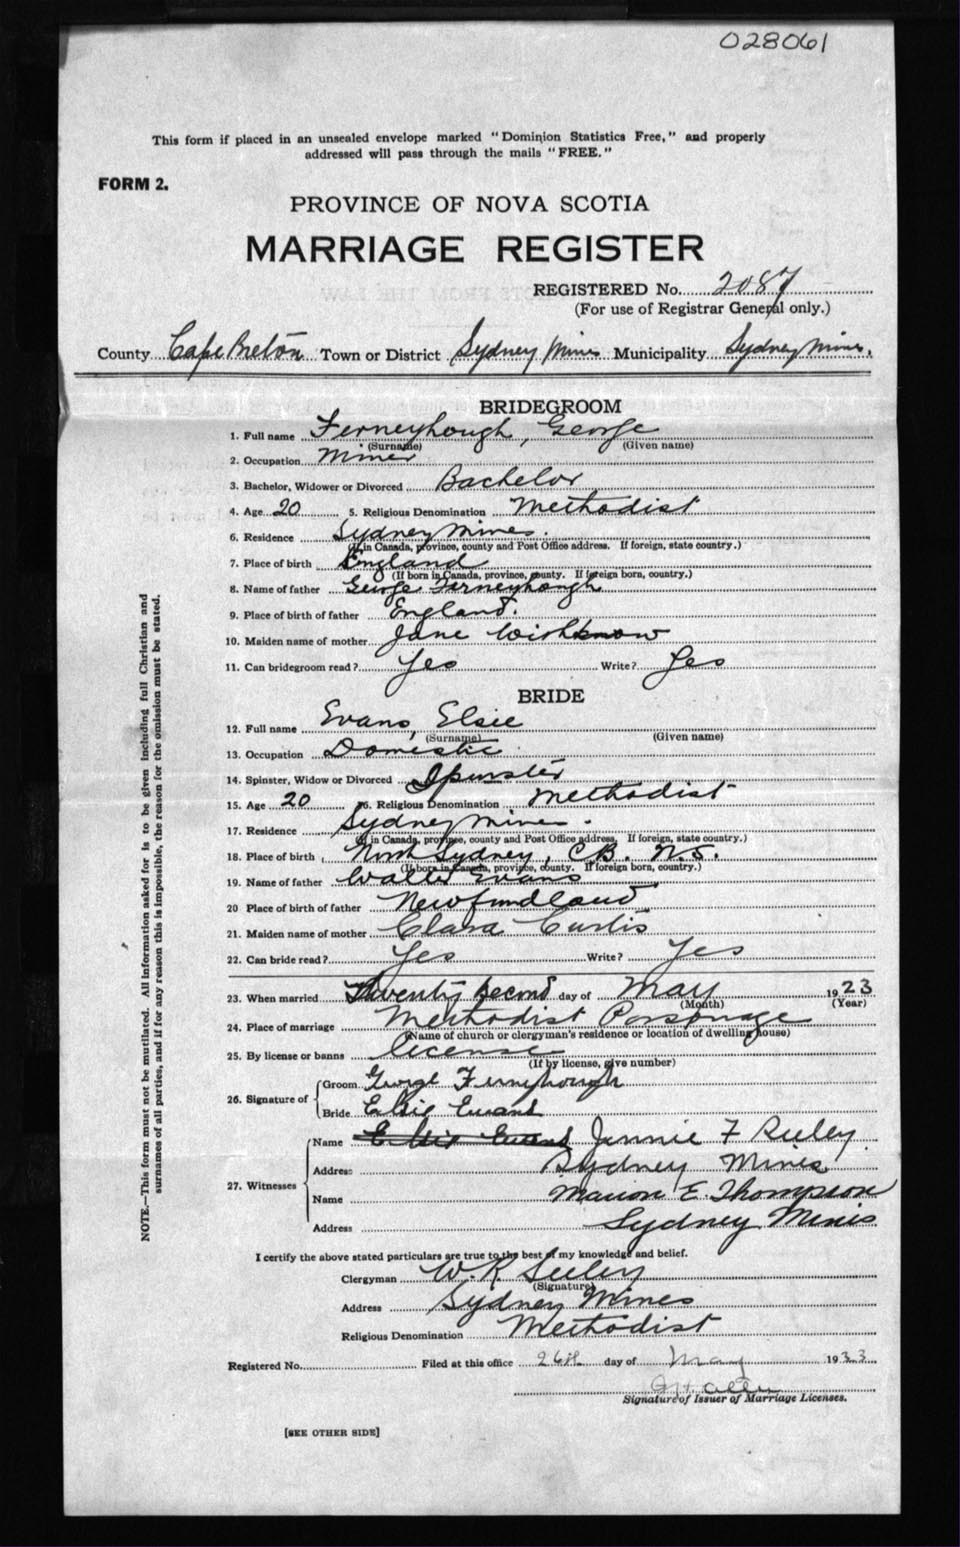 028061
This form if placed in an unsealed envelope marked "Dominion Statistics Free," and properly
addressed will pass through the mails "FREE."
FORM 2.
PROVINCE OF NOVA SCOTIA
MARRIAGE REGISTER
REGISTERED No. 2087
(For use of Registrar General only.)
County Cape Breton Town or District Sydney Mines Municipality Sydney Mines.
BRIDEGROOM
1. Full name Ferneyhough, George
(Surname) (Given name)
2. Occupation Miner
3. Bachelor, Widower or Divorced Bachelor
4. Age 20 5. Religious Denomination Methodist
6. Residence Sydney Mines
(If in Canada, province, county and Post Office address. If foreign, state country.)
7. Place of birth England
(If born in Canada, province, county. If foreign born, country.)
8. Name of father George Ferneyhough
9. Place of birth of father England.
10. Maiden name of mother Jane
11. Can bridegroom read? Yes Write? Yes
BRIDE
12. Full name Evans, Elsie
(Surname) (Given name)
13. Occupation Domestic
14. Spinster, Widow or Divorced Spinster
15. Age 20 16. Religious Denomination Methodist
17. Residence Sydney Mines.
(If in Canada, province, county and Post Office address. If foreign, state country.)
18. Place of birth North Sydney, C.B. N.S.
(If born in Canada, province, county. If foreign born, country.)
19. Name of father Walter Evans
20 Place of birth of father Newfoundland
21. Maiden name of mother Clara Curtis
22. Can bride read? Yes Write? Yes
23. When married Twenty second day of May 1923
(Month) (Year)
24. Place of marriage Methodist Parsonage
(Name of church or clergyman's residence or location of dwelling house)
25. By license or banns license
(If by license, give number)
26. Signature of Groom George Ferneyhough
Bride Elsie Evans
27. Witnesses Name Elsie Evans Jennie F Seeley
Address Sydney Mines
Name Marion E. Thompson
Address Sydney Mines
I certify the above stated particulars are true to the best of my knowledge and belief.
Clergyman W. R. Seeley
(Signature)
Address Sydney Mines
Religious Denomination Methodist
Registered No. Filed at this office 26th day of May 1933
Signature of Issuer of Marriage Licenses.
[SEE OTHER SIDE]
NOTE.—This form must not be mutilated. All information asked for is to be given including full Christian and
surnames of all parties, and if for any reason this is impossible, the reason for the omission must be stated.